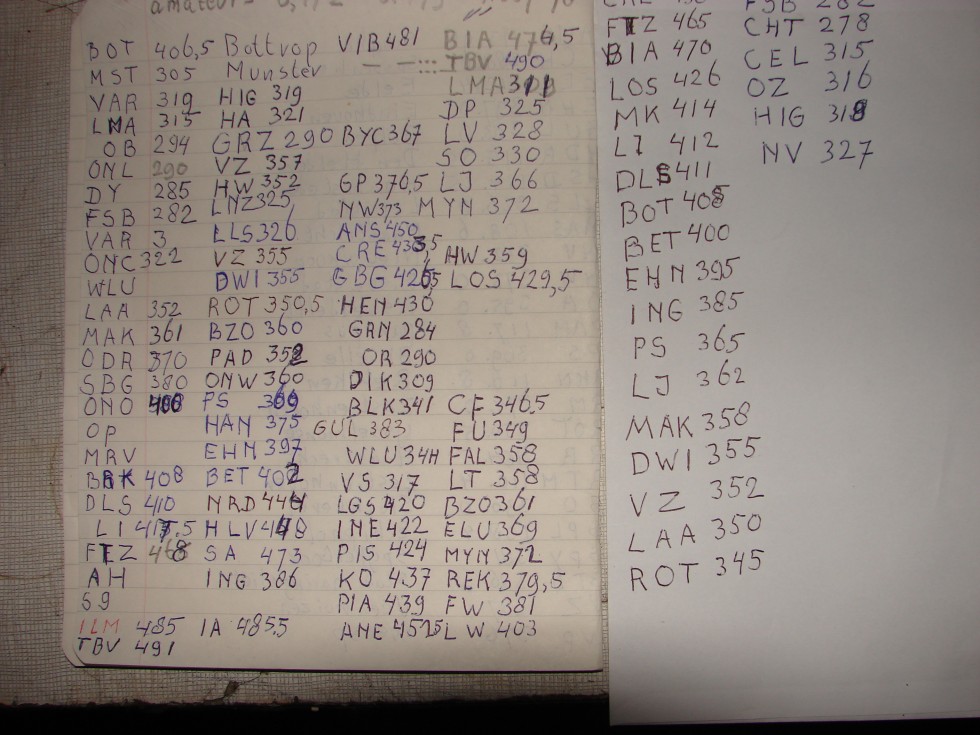 BOT 406,5 Bottrop VIB 481 BIA 474,5
MST 305 Munster — — TBV 490
VAR 319 HIG 319 LMA 311
LMA 315 HA 321 DP 325
OB 294 GRZ 290 BYC 367 LV 328
ONL 290 VZ 357 SO 330
DY 285 HW 352 GP 376,5 LJ 366
FSB 282 LNZ 325 NW 373 MYN 372
VAR 3 LLS 326 ANS 450
ONC 322 VZ 355 CRE HW 359
WLU DWI 355 GBG LOS 429,5
LAA 352 ROT 350,5 HEN 430
MAK 361 BZO 360 GRN 284
ODR 370 PAD 352 OR 290
SBG 380 ONW 360 DIK 309
ONO PS 369 BLK 341 CF 346,5
OP HAN 375 GUL 383 FU 349
MRV EHN 397 WLU 344 FAL 358
BRK 408 BET 402 VS 317 LT 358
DLS 410 NRD 444 LGS 420 BZO 361
LI 417,5 HLV 448 INE 422 ELU 369
FTZ 468 SA 473 PIS 424 MYN 372
AH ING 386 KO 437 REK 379,5
S9 PIA 439 FW 381
ILM 485 IA 485,5 ANE 451,5 LW 403
TBV 491
FTZ 465 CHT 278
BIA 470 CEL 315
LOS 426 OZ 316
MK 414 HIG 318
LI 412 NV 327
DLS 411
BOT 408
BET 400
EHN 395
ING 385
PS 365
LJ 362
MAK 358
DWI 355
VZ 352
LAA 350
ROT 345